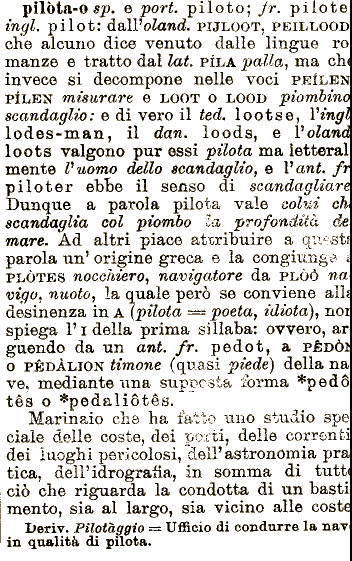 pilòta-o sp. e port. piloto; fr. pilote
ingl. pilot: dall'oland. PIJLOOT, PEILLOOD
che alcuno dice venuto dalle lingue ro
manze e tratto dal lat. PÍLA palla, ma ch
invece si decompone nelle voci PEÍLEN
PÍLEN misurare e LOOT O LOOD piombino
scandaglio: e di vero il ted. lootse, l'ingl
lodes-man, il dan. loods, e l'oland
loots valgono pur essi pilota ma letteral
mente l'uomo dello scandaglio, e l'ant. fr
piloter ebbe il senso di scandagliare
Dunque a parola pilota vale colui ch
scandaglia col piombo la profondità de
mare. Ad altri piace attribuire a questa
parola un' origine greca e la congiunge
PLÒTES nocchiero, navigatore da PLÓÔ na
vigo, nuoto, la quale però se conviene all
desinenza in A (pilota = poeta, idiota), non
spiega l' I della prima sillaba: ovvero, ar
guendo da un ant. fr. pedot, a PÊDÒN
O PÊDÀLION timone (quasi piede) della na
ve, mediante una supposta forma *pedô
tês o *pedaliôtês.
Marinaio che ha fatto uno studio spe
ciale delle coste, dei porti, delle correnti
dei luoghi pericolosi, dell'astronomia pra
tica, dell'idrografia, in somma di tutto
ciò che riguarda la condotta di un basti
mento, sia al largo, sia vicino alle coste
Deriv. Pilotàggio = Ufficio di condurre la nav
in qualità di pilota.